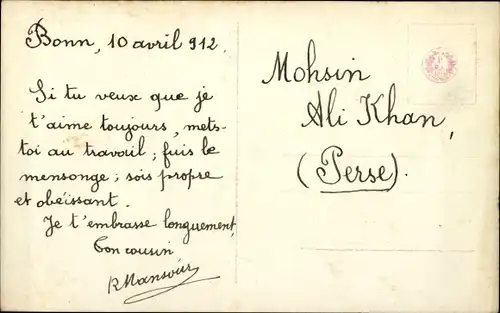 Bonn, 10 avril 912.
Si tu veux que je
t'aime toujours, mets-
toi au travail; fuis le
mensonge; sois propre
et obéissant.
Je t'embrasse longuement,
Ton cousin,
R Mansour
Mohsin
Ali Khan,
(Perse).